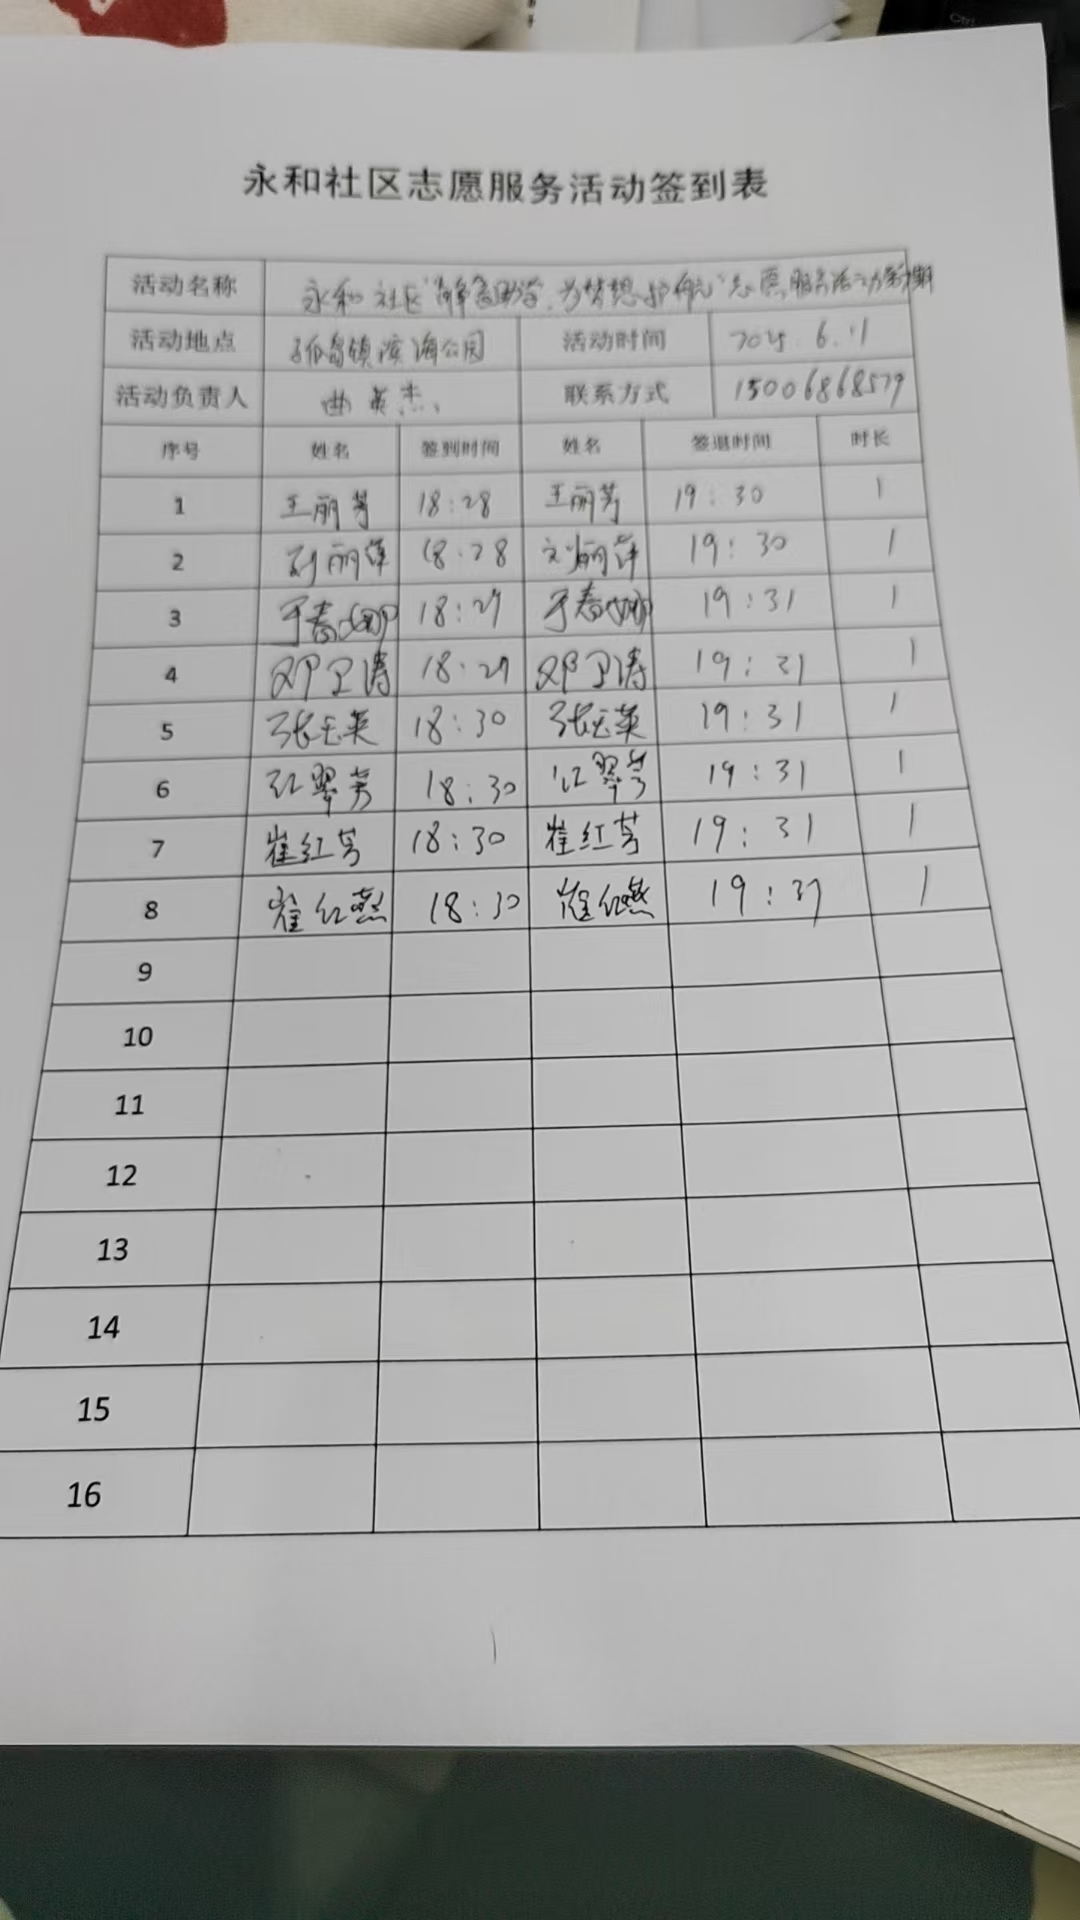 Ctrl
永和社区志愿服务活动签到表
活动名称 永和社区 助学 为梦想护航 志愿服务活动
活动地点 孤岛镇滨海公园 活动时间 2025.6.11
活动负责人 曲英杰 联系方式 15006868579
序号 姓名 签到时间 姓名 签退时间 时长
1 王丽芳 18:28 王丽芳 19:30 1
2 刘丽萍 18:28 刘丽萍 19:30 1
3 于春娜 18:29 于春娜 19:31 1
4 邓卫涛 18:29 邓卫涛 19:31 1
5 张玉英 18:30 张玉英 19:31 1
6 翠芳 18:30 翠芳 19:31 1
7 崔红芳 18:30 崔红芳 19:31 1
8 崔红燕 18:30 崔红燕 19:37 1
9
10
11
12
13
14
15
16